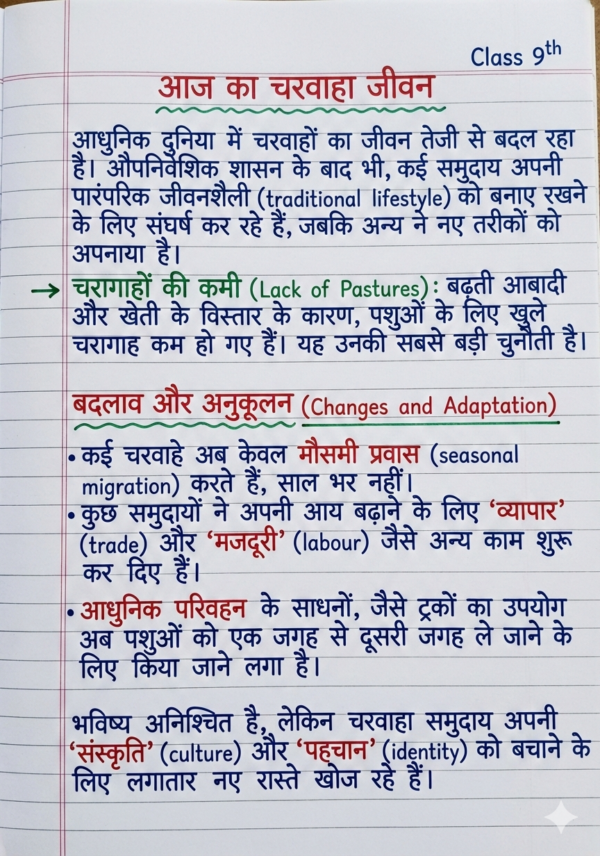 Class 9th
आज का चरवाहा जीवन
आधुनिक दुनिया में चरवाहों का जीवन तेजी से बदल रहा
है। औपनिवेशिक शासन के बाद भी, कई समुदाय अपनी
पारंपरिक जीवनशैली (traditional lifestyle) को बनाए रखने
के लिए संघर्ष कर रहे हैं, जबकि अन्य ने नए तरीकों को
अपनाया है।
→ चरागाहों की कमी (Lack of Pastures): बढ़ती आबादी
और खेती के विस्तार के कारण, पशुओं के लिए खुले
चरागाह कम हो गए हैं। यह उनकी सबसे बड़ी चुनौती है।
बदलाव और अनुकूलन (Changes and Adaptation)
• कई चरवाहे अब केवल मौसमी प्रवास (seasonal
migration) करते हैं, साल भर नहीं।
• कुछ समुदायों ने अपनी आय बढ़ाने के लिए ‘व्यापार’
(trade) और ‘मजदूरी’ (labour) जैसे अन्य काम शुरू
कर दिए हैं।
• आधुनिक परिवहन के साधनों, जैसे ट्रकों का उपयोग
अब पशुओं को एक जगह से दूसरी जगह ले जाने के
लिए किया जाने लगा है।
भविष्य अनिश्चित है, लेकिन चरवाहा समुदाय अपनी
‘संस्कृति’ (culture) और ‘पहचान’ (identity) को बचाने के
लिए लगातार नए रास्ते खोज रहे हैं।